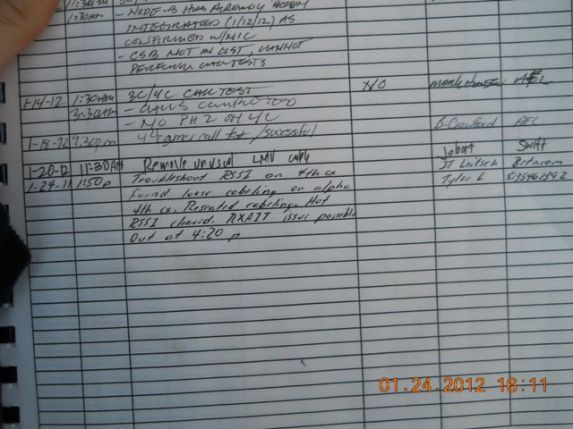 1:30am - NODE-B HAS ALREADY BEEN
INTEGRATED (1/12/12) AS
CONFIRMED W/NIC
- CSB NOT IN LIST, CANNOT
PERFORM CALL TESTS
1-14-12 1:30am 3C/4C CALL TEST NO
3:30am - CALLS COMPLETED
- NO PH 2 ON 4C
1-18-12 4th carrier call test / Sucessful B. Crawford AFL
1-20-12 11:30AM Remove unused LMU cable Swift
1-24-11 1:50p Troubleshoot RSSI on 4th ca JT
Found loose cabeling on alpha Tyler
4th ca. Reseated cabeling. Hot
RSSI cleared. RXAIT issue possible
Out at 4:20 p
01.24.2012 16:11